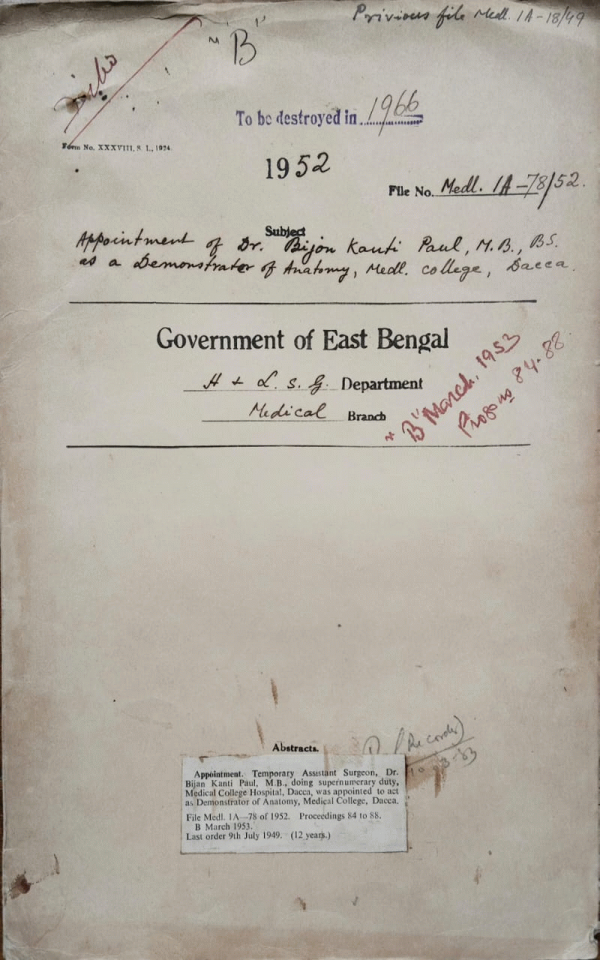 Privious file Medl. 1A-18/49
"B"
To be destroyed in 1966
Form No. XXXVIII, S. I., 1924.
1952
File No. Medl. 1A-78/52.
Subject
Appointment of Dr. Bijon Kanti Paul, M.B., BS.
as a Demonstrator of Anatomy, Medl. college, Dacca.
Government of East Bengal
H + L. S. G. Department
Medical Branch
"B" March. 1953
Progs no 84-88
Abstracts.
(Recorder)
Appointment. Temporary Assistant Surgeon, Dr.
Bijan Kanti Paul, M.B., doing supernumerary duty,
Medical College Hospital, Dacca, was appointed to act
as Demonstrator of Anatomy, Medical College, Dacca.
File Medl. 1A—78 of 1952. Proceedings 84 to 88.
B March 1953.
Last order 9th July 1949. (12 years.)